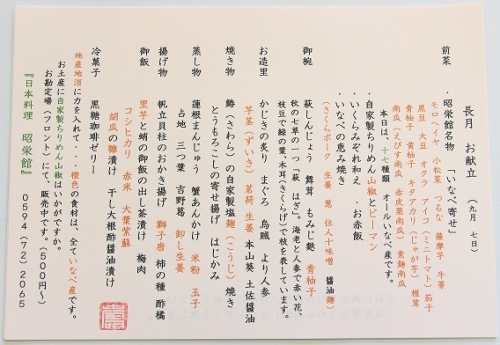 長月　お献立　（九月　七日）
前菜　・昭栄館名物　「いなべ寄せ」
モロヘイヤ　小松菜　つるな　薩摩芋　牛蒡
黒豆　大豆　オクラ　アイコ（ミニトマト）茄子
青柚子　黄柚子　キタアカリ（じゃが芋）　椎茸
南瓜（えびす南瓜　赤皮栗南瓜）　素麺南瓜
本日は、十七種類　オールいなべ産です。
・自家製ちりめん山椒とピーマン
・いくらみぞれ和え　・お赤飯
・いなべの恵み焼き
（きくらぶポーク　生姜　葱　住人十味噌　醤油麹）
御椀　萩しんじょう　舞茸　もみじ麩　青柚子
秋の七草の一つ「萩　はぎ」。海老と人参で赤い花、
枝豆で緑の葉・木耳（きくらげ）で枝を表しています。
お造里　かじきの炙り　まぐろ　烏賊　より人参
芋茎（ずいき）　茗荷　生姜　本山葵　土佐醤油
焼き物　鰆（さわら）の自家製塩麹（こうじ）　焼き
とうもろこしの寄せ揚げ　はじかみ
蒸し物　蓮根まんじゅう　蟹あんかけ　米粉　玉子
占地　三つ葉　吉野葛　卸し生姜
揚げ物　帆立貝柱のおかき揚げ　獅子唐　柿の種　酢橘
御飯　里芋と蛸の御飯の出し茶漬け　梅肉
コシヒカリ　赤米　大葉紫蘇
胡瓜の糠漬け　干し大根酢醤油漬け
冷菓子　黒糖珈琲ゼリー
地産地消に力を入れて・・・橙色の食材は、全ていなべ産です。
お土産に自家製ちりめん山椒はいかがですか。
お勘定場（フロント）にて、販売中です。（５００円〜）
『日本料理　昭栄館』　０５９４（７２）２０６５